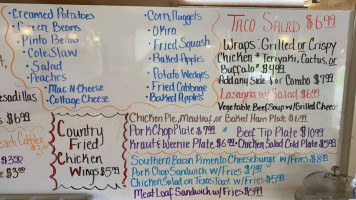 • Creamed Potatoes
• Green Beans
• Pinto Beans
• Cole Slaw
• Salad
• Peaches
• Mac N Cheese
• Cottage Cheese
• Corn Nuggets
• Okra
• Fried Squash
• Baked Apples
• Potato Wedges
• Fried Cabbage
• Baked Apples
Taco Salad $6.99
Wraps: Grilled or Crispy
Chicken * Teriyaki, Cactus, or
Buffalo * $4.99
Add any Side for Combo $7.99
Lasagna w/ Salad $6.99
Vegetable Beef Soup w/ Grilled Cheese
esadillas
$6.99
$3.50
$3.99
Country
Fried
Chicken
Wings $5.99
Chicken Pie, Meatloaf, or Baked Ham Plate $6.99
Pork Chop Plate $7.99 * Beef Tip Plate $10.99
Kraut & Weenie Plate $6.99 * Chicken Salad Cold Plate $5.99
Southern Bacon Pimento Cheeseburger w/ Fries $8.99
Pork Chop Sandwich w/ Fries $7.99
Chicken Salad on Texas Toast w/ Fries $5.99
Meat Loaf Sandwich w/ Fries $5.99